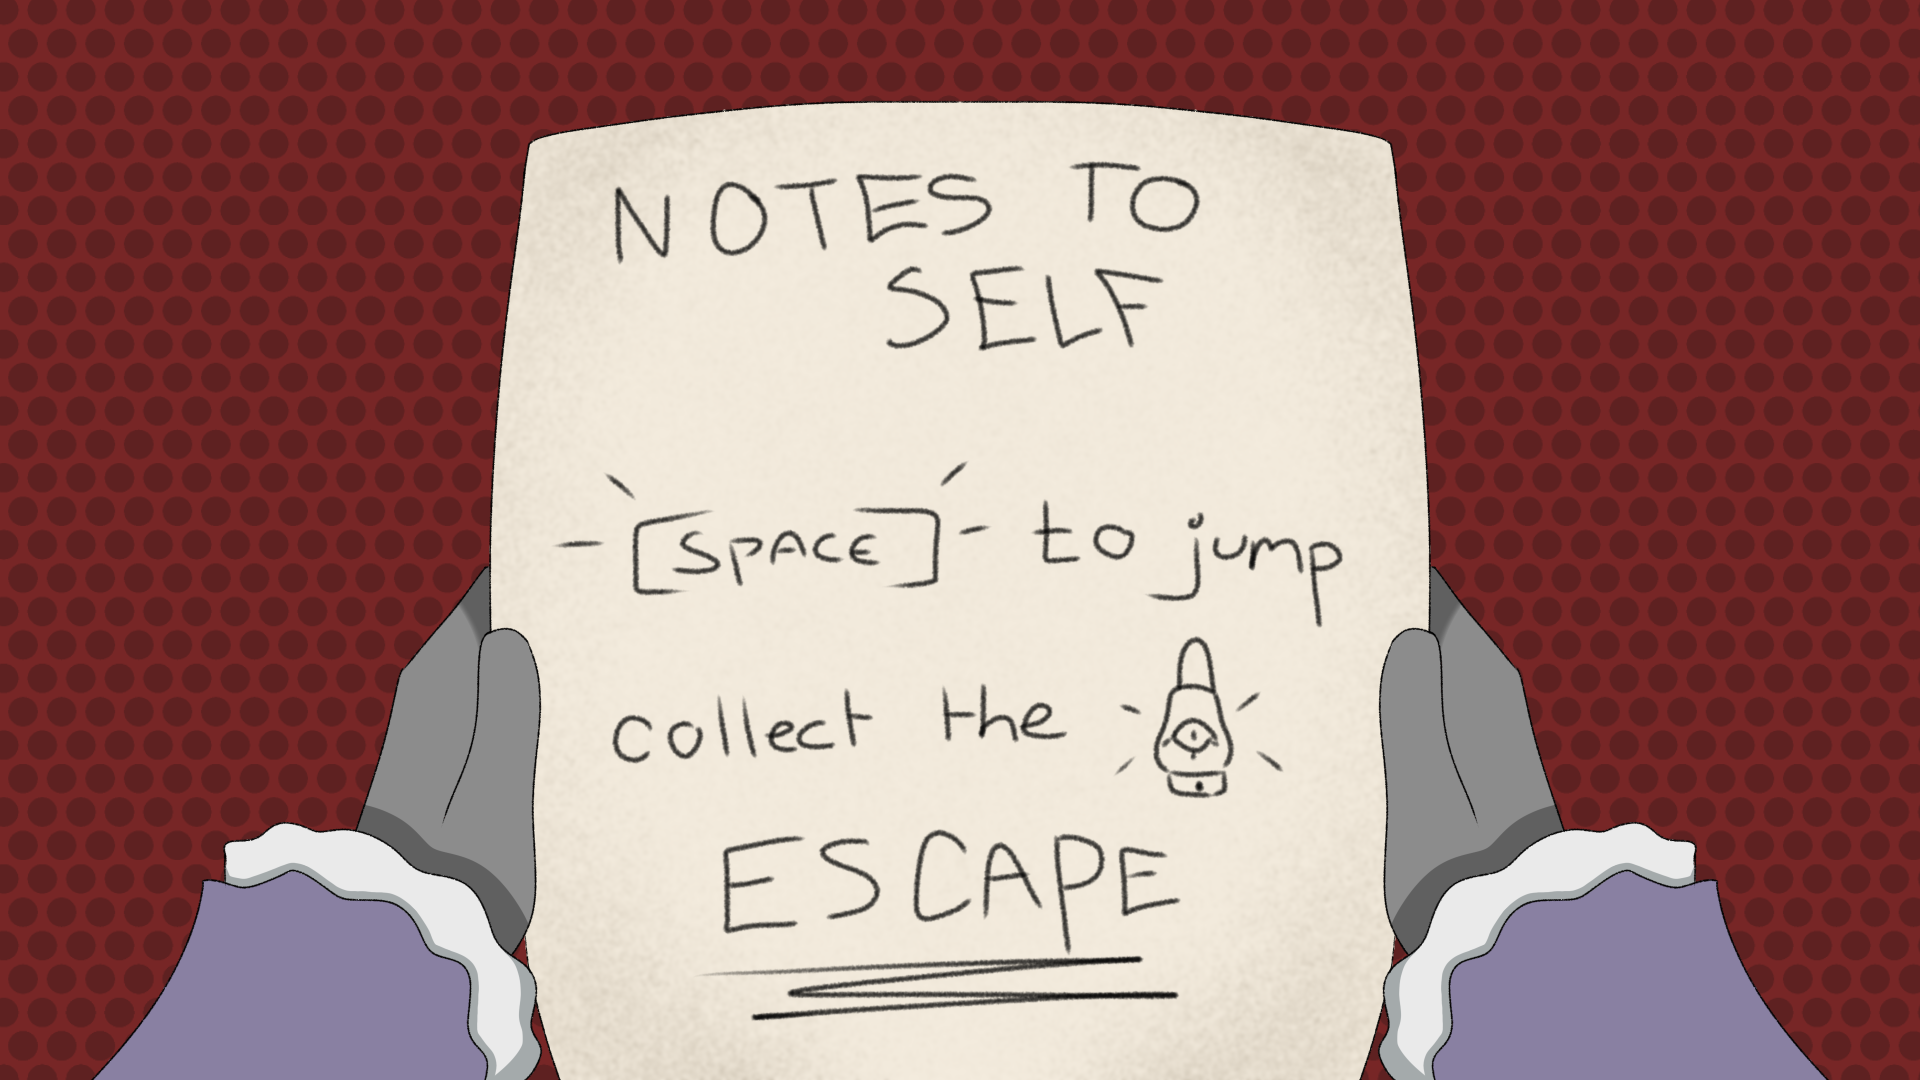 NOTES TO
SELF
[SPACE] to jump
collect the
ESCAPE